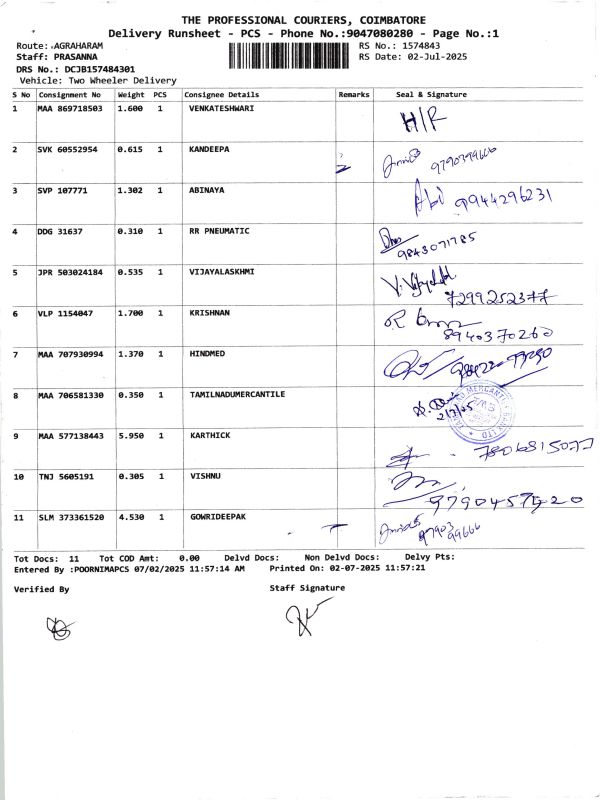 THE PROFESSIONAL COURIERS, COIMBATORE
Delivery Runsheet - PCS - Phone No.:9047080280 - Page No.:1
Route: AGRAHARAM RS No.: 1574843
Staff: PRASANNA RS Date: 02-Jul-2025
DRS No.: DCJB157484301
Vehicle: Two Wheeler Delivery
S No Consignment No Weight PCS Consignee Details Remarks Seal & Signature
1 MAA 869718503 1.600 1 VENKATESHWARI H/R
2 SVK 60552954 0.615 1 KANDEEPA 9790399666
3 SVP 107771 1.302 1 ABINAYA Abi 9944296231
4 DDG 31637 0.310 1 RR PNEUMATIC 9843071785
5 JPR 503024184 0.535 1 VIJAYALASKHMI 7299252377
6 VLP 1154047 1.700 1 KRISHNAN 8940370260
7 MAA 707930994 1.370 1 HINDMED
8 MAA 706581330 0.350 1 TAMILNADUMERCANTILE 2/7/25
9 MAA 577138443 5.950 1 KARTHICK 7806815077
10 TNJ 5605191 0.305 1 VISHNU 9790457520
11 SLM 373361520 4.530 1 GOWRIDEEPAK 97903 99666
Tot Docs: 11 Tot COD Amt: 0.00 Delvd Docs: Non Delvd Docs: Delvy Pts:
Entered By :POORNIMAPCS 07/02/2025 11:57:14 AM Printed On: 02-07-2025 11:57:21
Verified By Staff Signature